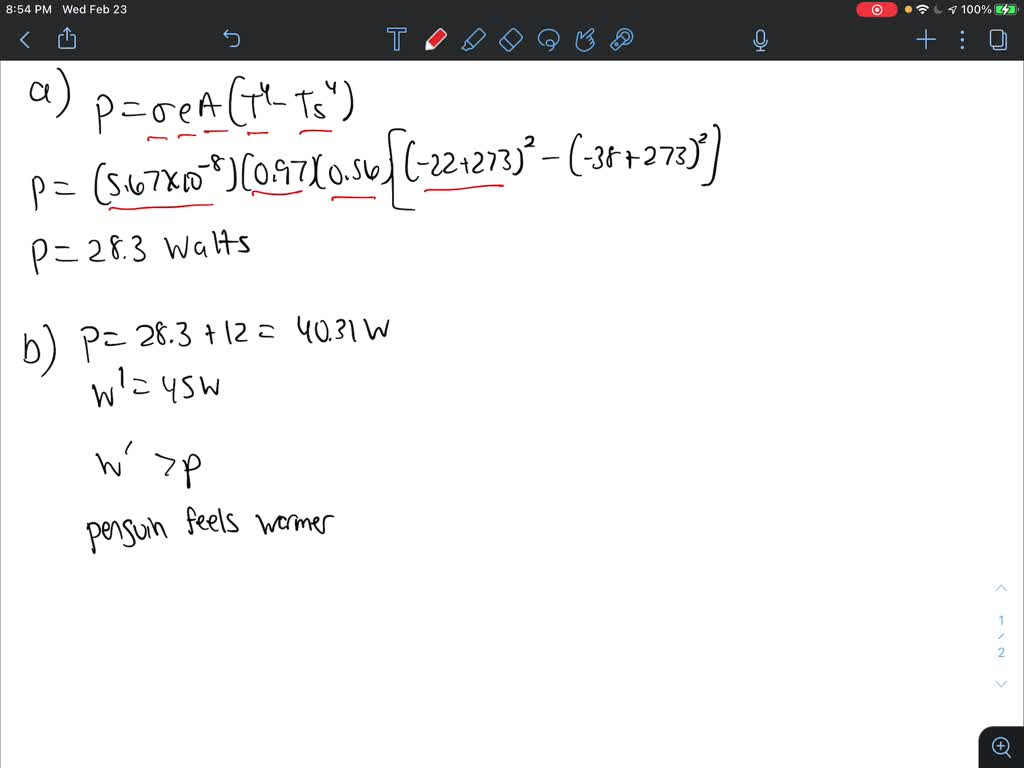 8:54 PM Wed Feb 23
100%
T
a) P = σeA(T⁴ - Ts⁴)
P = (5.67×10⁻⁸)(0.97)(0.56)[(-22+273)² - (-38+273)²]
P = 28.3 Watts
b) P = 28.3 + 12 = 40.31 W
W' = 45W
W' > P
penguin feels warmer
1
2